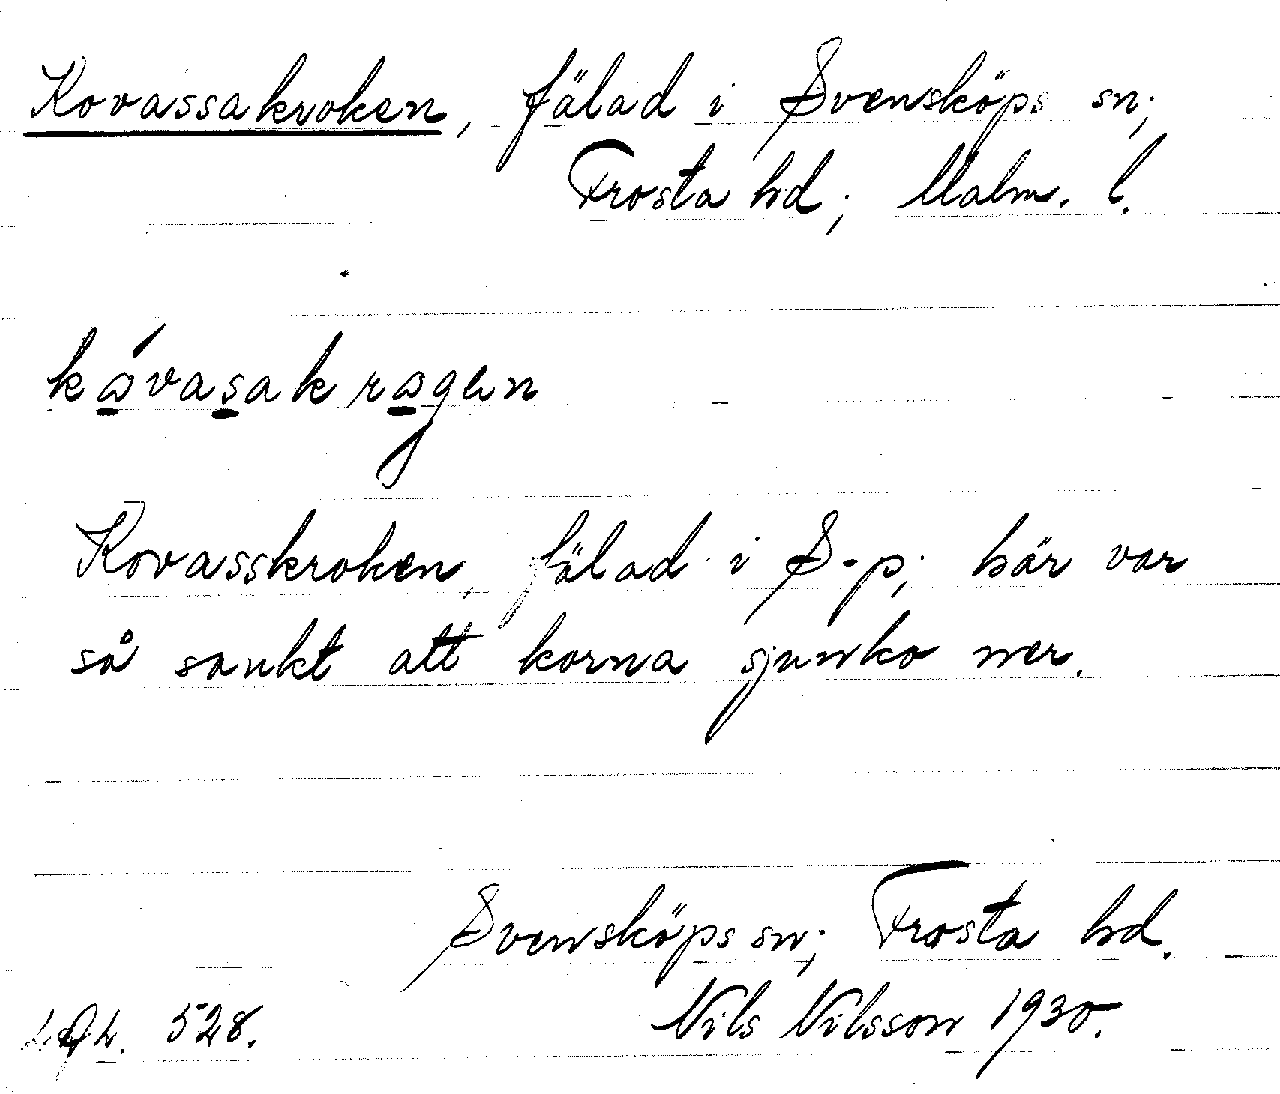 Kovassakroken, fälad i Svensköps sn;
Frosta hd; Malm. l.
kóvasakrogen
Kovasskroken, fälad i S-p; här var
så sankt att korna sjunko ner.
Svensköps sn; Frosta hd.
528. Nils Nilsson 1930.